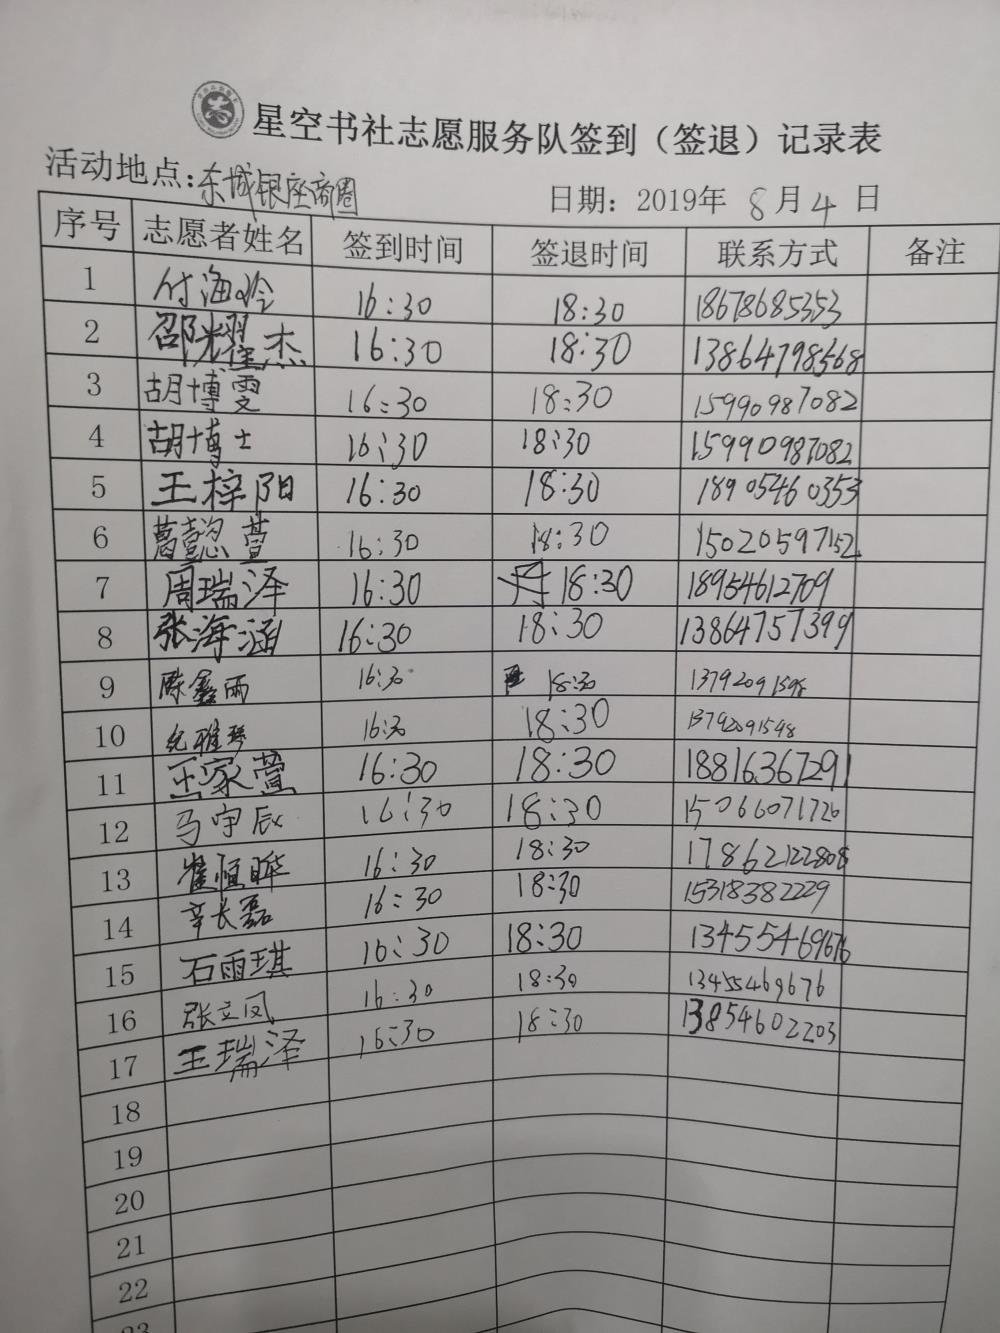 星空书社志愿服务队签到（签退）记录表
活动地点：东城银座商圈 日期：2019年 8月4日
序号 志愿者姓名 签到时间 签退时间 联系方式 备注
1 付海玲 16:30 18:30 18678685353
2 邵光耀杰 16:30 18:30 13864798568
3 胡博雯 16:30 18:30 15990987082
4 胡博士 16:30 18:30 15990987082
5 王梓阳 16:30 18:30 18905460353
6 葛懿萱 16:30 18:30 15020597152
7 周瑞泽 16:30 18:30 18954612709
8 张海涵 16:30 18:30 13864757399
9 陈鑫雨 16:30 18:30 13792091598
10 16:30 18:30 13792091548
11 王家萱 16:30 18:30 18816367291
12 马宇辰 16:30 18:30 15066071726
13 崔恒晔 16:30 18:30 17862122808
14 辛长磊 16:30 18:30 15318382229
15 石雨琪 16:30 18:30 13455469676
16 张立凤 16:30 18:30 13455469676
17 王瑞泽 16:30 18:30 13854602203
18
19
20
21
22
23